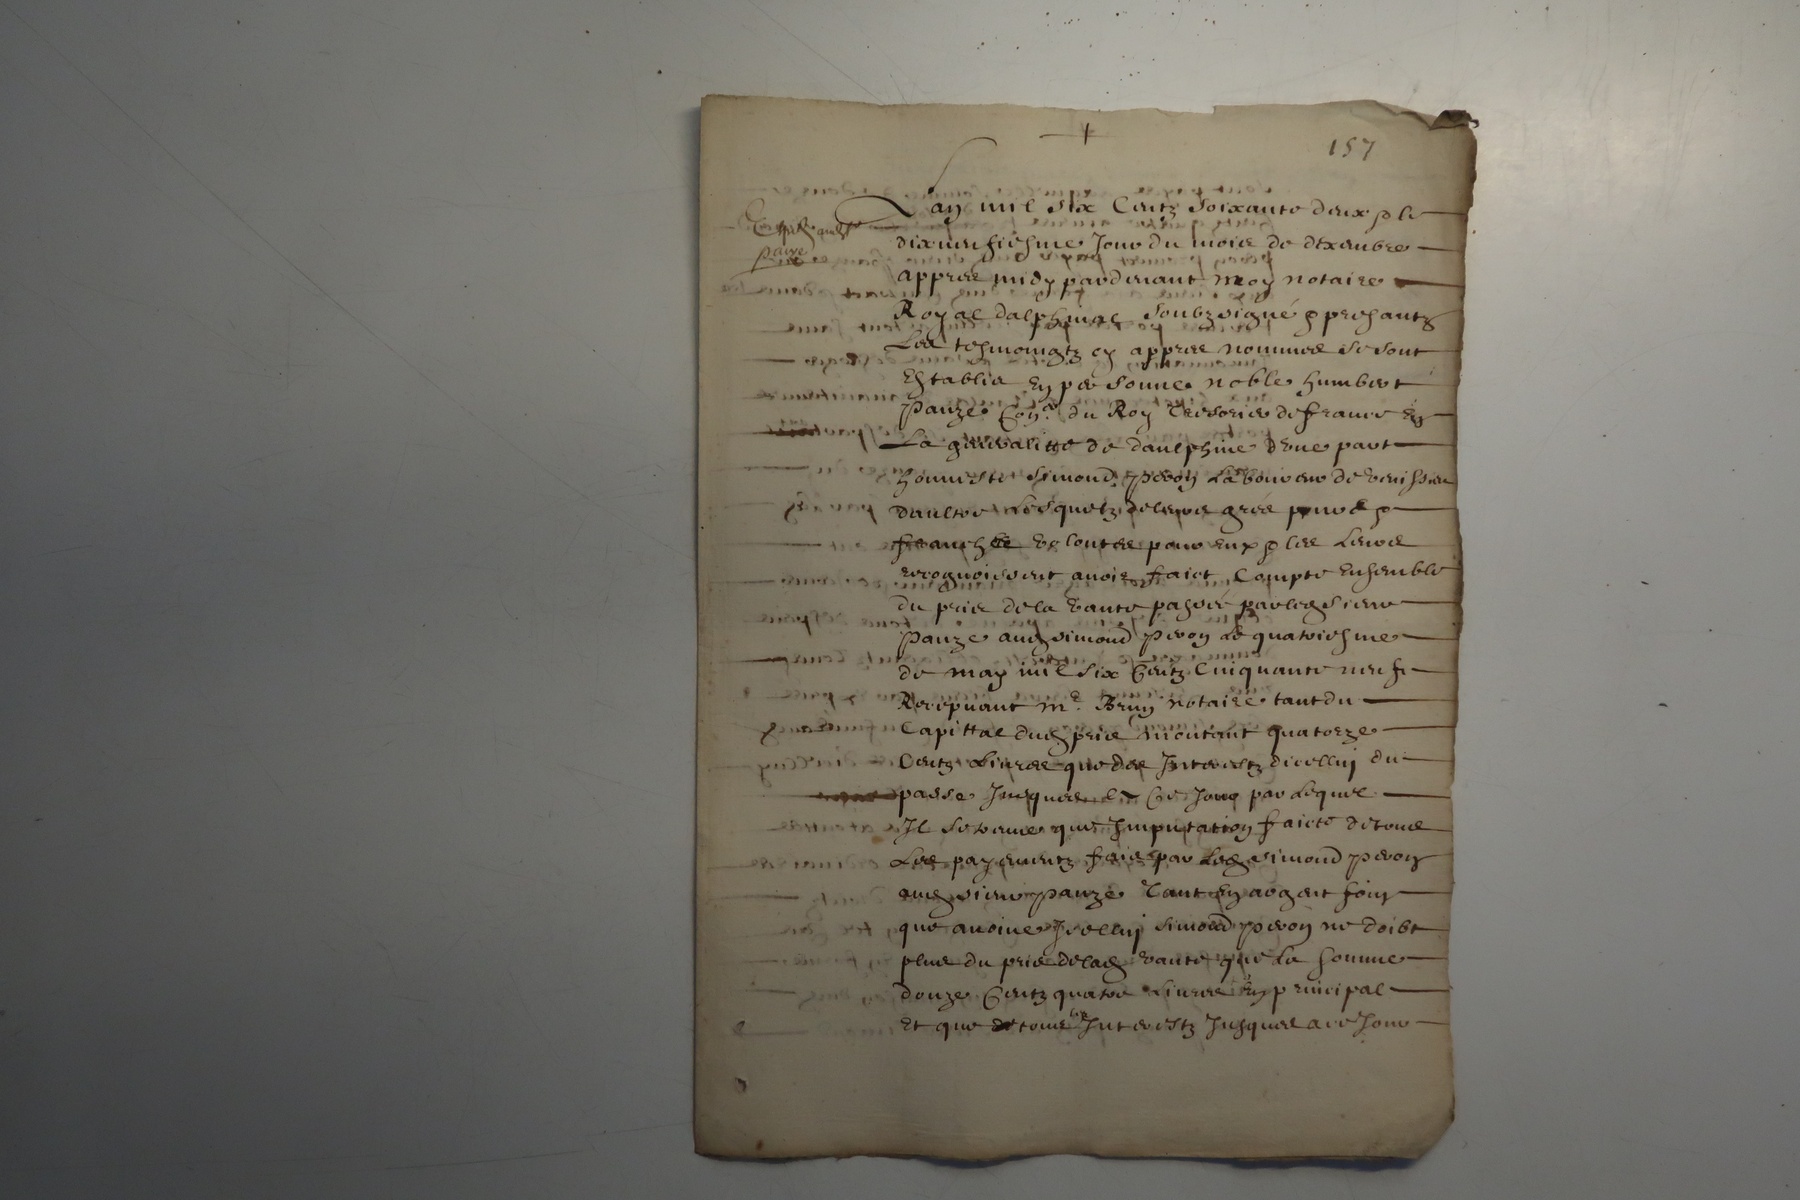 157
Lan mil six Centz Soixante deux & le
dixneufiesme Jour du mois de dexambre
appres midy pardevant moy notaire
Royal dalphinal Soubzsigné & presantz
Les tesmoingtz cy appres nommes se sont
Establis En personne noble humbert
Pauze Con.er du Roy Tresorier de france En
La generalitte de daulphine d'une part
honneste Simond Peron Laboureur de
daultre Lesquelz de leurs grés purs &
franches volontes pour eux & les Leurs
recognoissent avoir faict Compte Ensemble
du pris de la vante passée par led sieur
Pauze aud simond peron Le quatriesme
de may mil Six Centz Cinquante neuf
Recepvant me. Brun notaire tant du
Capittal dud pris montant quatorze
Centz Livres que des Interestz dicelluj du
passe Jusques Ce Jour par Lequel
Il se treuve que Imputation faicte de tous
Les payementz faits par Led simond peron
aud sieur Pauze Tant En argent foin
que avoine Icelluj simond peron ne doibt
plus du pris de lad vante que La somme
douze Centz quatre Livres En principal
Et que tous les Interestz Jusques a ce Jour